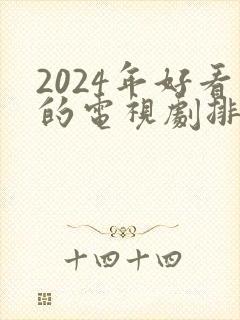 2024年好看
的電視劇排
十四十四